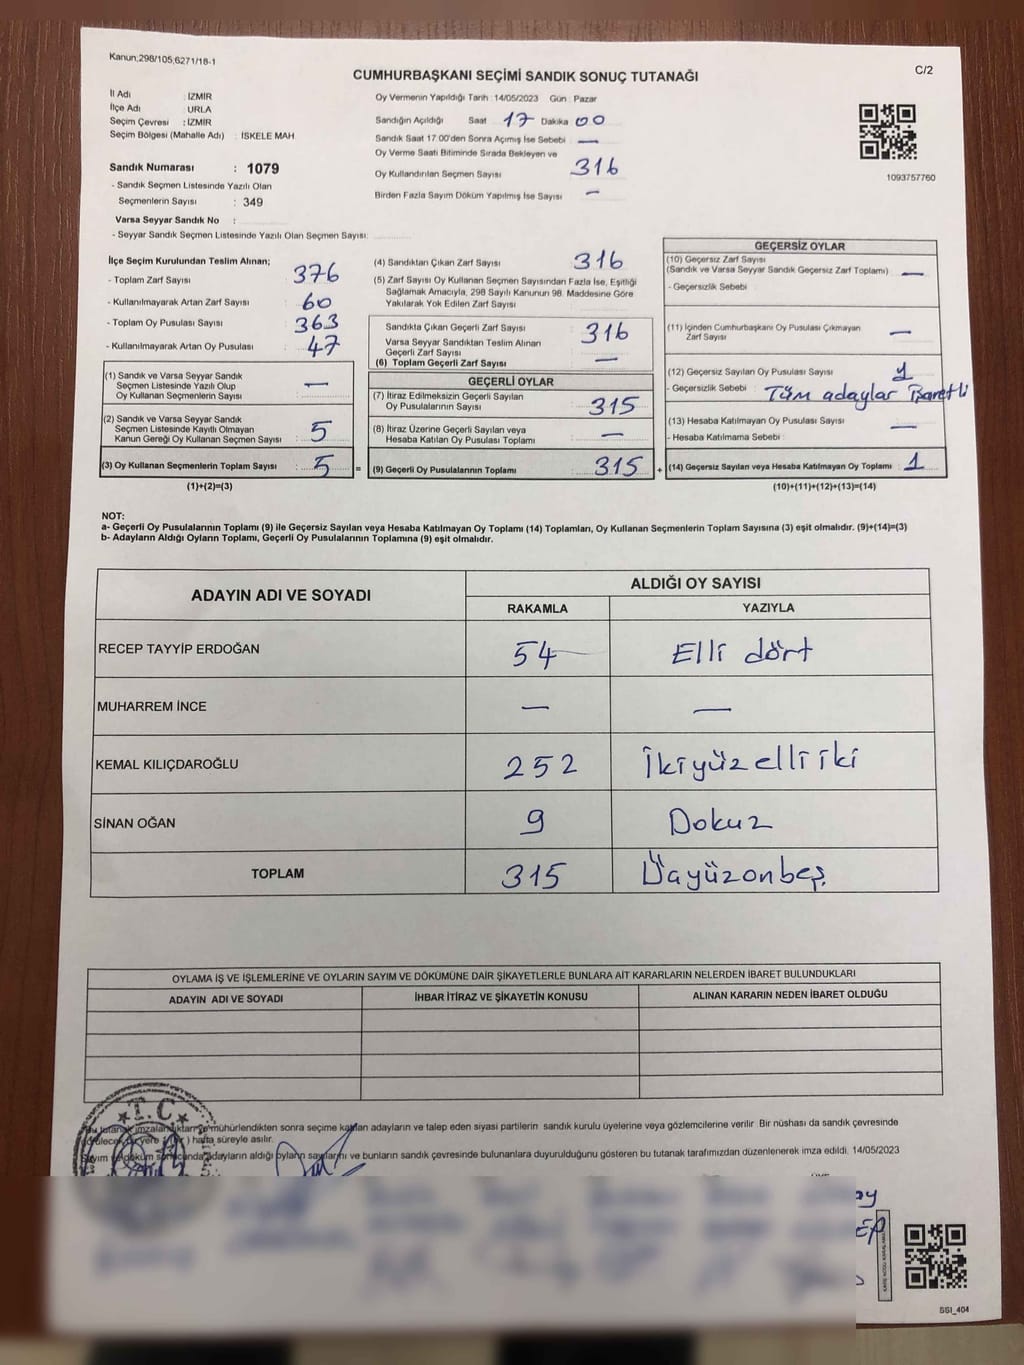 Kanun;298/105,6271/18-1
C/2
CUMHURBAŞKANI SEÇİMİ SANDIK SONUÇ TUTANAĞI
İl Adı : İZMİR
İlçe Adı : URLA
Seçim Çevresi : İZMİR
Seçim Bölgesi (Mahalle Adı) : İSKELE MAH
Sandık Numarası : 1079
- Sandık Seçmen Listesinde Yazılı Olan
Seçmenlerin Sayısı : 349
Varsa Seyyar Sandık No :
- Seyyar Sandık Seçmen Listesinde Yazılı Olan Seçmen Sayısı:
Oy Vermenin Yapıldığı Tarih :14/05/2023 Gün : Pazar
Sandığın Açıldığı Saat 17 Dakika 00
Sandık Saat 17.00'den Sonra Açımış İse Sebebi : —
Oy Verme Saati Bitiminde Sırada Bekleyen ve
Oy Kullandırılan Seçmen Sayısı 316
Birden Fazla Sayım Döküm Yapılmış İse Sayısı —
1093757760
İlçe Seçim Kurulundan Teslim Alınan;
- Toplam Zarf Sayısı : 376
- Kullanılmayarak Artan Zarf Sayısı : 60
- Toplam Oy Pusulası Sayısı : 363
- Kullanılmayarak Artan Oy Pusulası : 47
(1) Sandık ve Varsa Seyyar Sandık
Seçmen Listesinde Yazılı Olup
Oy Kullanan Seçmenlerin Sayısı : —
(2) Sandık ve Varsa Seyyar Sandık
Seçmen Listesinde Kayıtlı Olmayan
Kanun Gereği Oy Kullanan Seçmen Sayısı : 5
(3) Oy Kullanan Seçmenlerin Toplam Sayısı : 5 =
(1)+(2)=(3)
(4) Sandıktan Çıkan Zarf Sayısı 316
(5) Zarf Sayısı Oy Kullanan Seçmen Sayısından Fazla İse, Eşitliği
Sağlamak Amacıyla, 298 Sayılı Kanunun 98. Maddesine Göre
Yakılarak Yok Edilen Zarf Sayısı
Sandıkta Çıkan Geçerli Zarf Sayısı : 316
Varsa Seyyar Sandıktan Teslim Alınan
Geçerli Zarf Sayısı
(6) Toplam Geçerli Zarf Sayısı —
GEÇERLİ OYLAR
(7) İtiraz Edilmeksizin Geçerli Sayılan
Oy Pusulalarının Sayısı : 315
(8) İtiraz Üzerine Geçerli Sayılan veya
Hesaba Katılan Oy Pusulası Toplamı : —
(9) Geçerli Oy Pusulalarının Toplamı : 315 +
GEÇERSİZ OYLAR
(10) Geçersiz Zarf Sayısı
(Sandık ve Varsa Seyyar Sandık Geçersiz Zarf Toplamı) : —
- Geçersizlik Sebebi :
(11) İçinden Cumhurbaşkanı Oy Pusulası Çıkmayan
Zarf Sayısı : —
(12) Geçersiz Sayılan Oy Pusulası Sayısı : 1
- Geçersizlik Sebebi : Tüm adaylar İşaretli
(13) Hesaba Katılmayan Oy Pusulası Sayısı : —
- Hesaba Katılmama Sebebi :
(14) Geçersiz Sayılan veya Hesaba Katılmayan Oy Toplamı : 1
(10)+(11)+(12)+(13)=(14)
NOT:
a- Geçerli Oy Pusulalarının Toplamı (9) ile Geçersiz Sayılan veya Hesaba Katılmayan Oy Toplamı (14) Toplamları, Oy Kullanan Seçmenlerin Toplam Sayısına (3) eşit olmalıdır. (9)+(14)=(3)
b- Adayların Aldığı Oyların Toplamı, Geçerli Oy Pusulalarının Toplamına (9) eşit olmalıdır.
ADAYIN ADI VE SOYADI
ALDIĞI OY SAYISI
RAKAMLA YAZIYLA
RECEP TAYYİP ERDOĞAN 54 Elli dört
MUHARREM İNCE — —
KEMAL KILIÇDAROĞLU 252 İkiyüzelliiki
SİNAN OĞAN 9 Dokuz
TOPLAM 315 Üayüzonbeş
OYLAMA İŞ VE İŞLEMLERİNE VE OYLARIN SAYIM VE DÖKÜMÜNE DAİR ŞİKAYETLERLE BUNLARA AİT KARARLARIN NELERDEN İBARET BULUNDUKLARI
ADAYIN ADI VE SOYADI İHBAR İTİRAZ VE ŞİKAYETİN KONUSU ALINAN KARARIN NEDEN İBARET OLDUĞU
T.C.
Bu tutanak imzalandıktan ve mühürlendikten sonra seçime katılan adayların ve talep eden siyasi partilerin sandık kurulu üyelerine veya gözlemcilerine verilir. Bir nüshası da sandık çevresinde
hafta süreyle asılır.
adayların aldığı oyların sayılarını ve bunların sandık çevresinde bulunanlara duyurulduğunu gösteren bu tutanak tarafımızdan düzenlenerek imza edildi. 14/05/2023
SSI_404